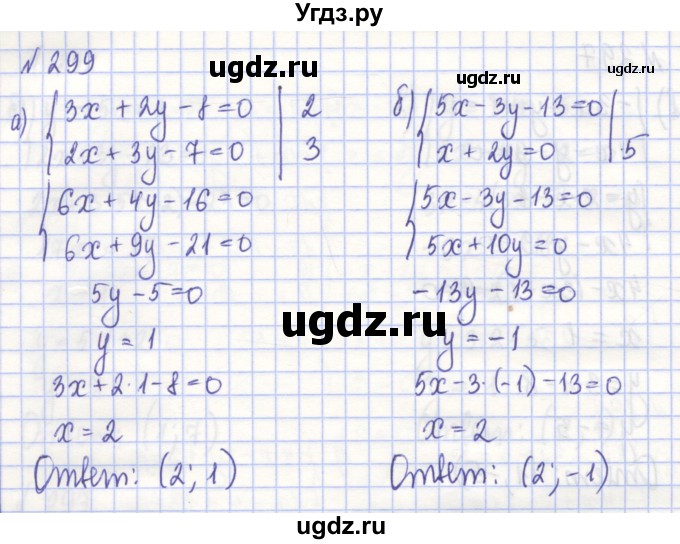 Угдз.ру
№ 299
ugdz.ru
ugdz.ru
а) { 3x + 2y - 8 = 0 | 2
2x + 3y - 7 = 0 | 3
{ 6x + 4y - 16 = 0
6x + 9y - 21 = 0
5y - 5 = 0
y = 1
3x + 2·1 - 8 = 0
x = 2
Ответ: (2; 1)
б) { 5x - 3y - 13 = 0
x + 2y = 0 | ·5
{ 5x - 3y - 13 = 0
5x + 10y = 0
-13y - 13 = 0
y = -1
5x - 3·(-1) - 13 = 0
x = 2
Ответ: (2; -1)
ugdz.ru
ugdz.ru
ugdz.ru
ugdz.ru